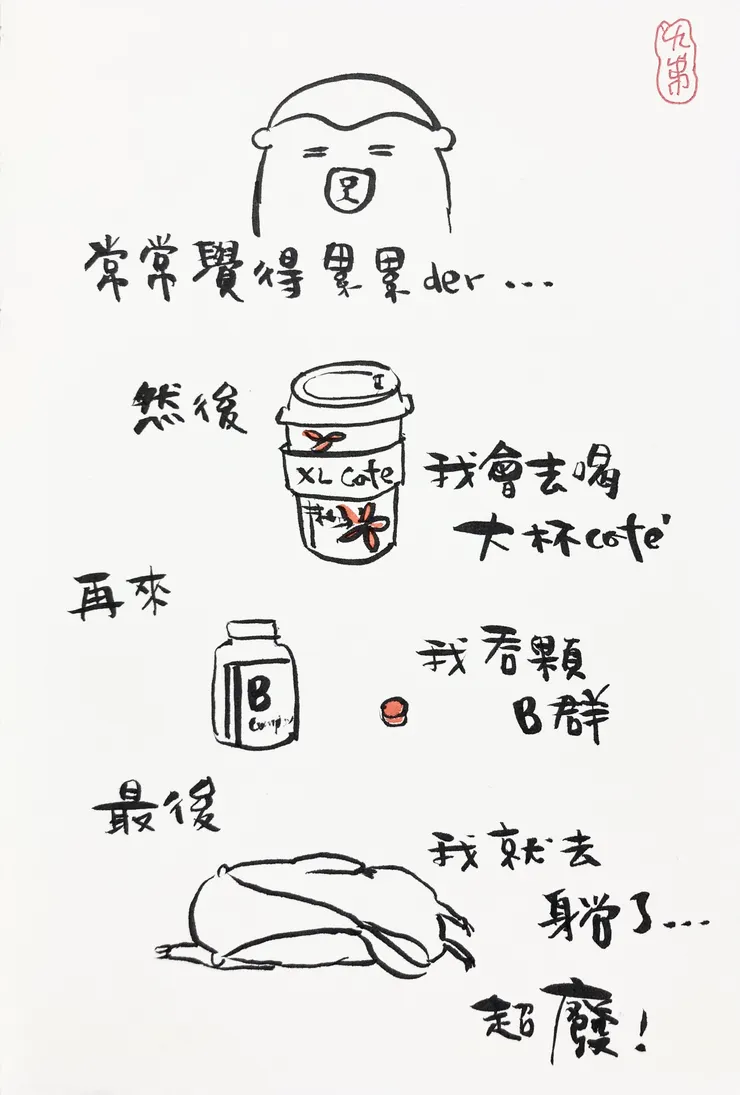 常常覺得累累der...
然後
XL Cafe
我會去喝
大杯café
再來
B
我吞顆
B群
最後
我就去
躺了...
超廢!